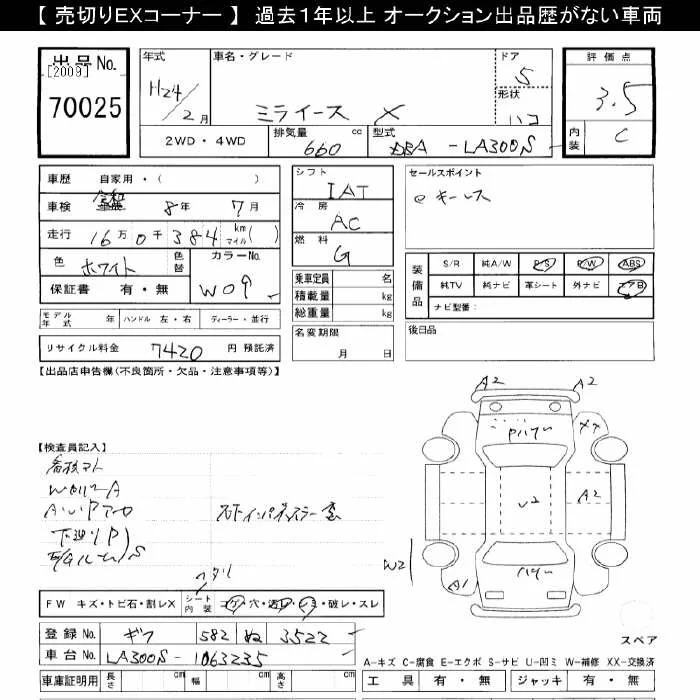 【 売切りEXコーナー 】 過去1年以上 オークション出品歴がない車両
出品 No.
[2009]
70025
年式
H24/2月
車名・グレード
ミライース X
ドア
5
形状
ハコ
評価点
3.5
内装
C
2WD・4WD
排気量
660 cc
型式
DBA - LA300S
車歴 自家用・( )
車検 令和 8年 7月
走行 16万 0千 384 km マイル( )
色 ホワイト 色替
カラーNo.
W09
保証書 有・無
シフト
IAT
冷房
AC
燃料
G
乗車定員 名
積載量 kg
総重量 kg
名変期限
月 日
セールスポイント
キーレス
装備品
S/R 純A/W P/S P/W ABS
純TV 純ナビ 革シート 外ナビ エアB
ナビ型番:
後日品
モデル年式 年 ハンドル 左・右 ディーラー・並行
リサイクル料金 7420 円 預託済
【出品店申告欄(不良箇所・欠品・注意事項等)】
【検査員記入】
W A
下廻り P
S
ヘタリ
FW キズ・トビ石・割レX
シート内装
コゲ・穴・汚レ・シミ・破レ・スレ
A2 A2
XX
A2
U2
W2
A1
登録No. ギフ 582 ぬ 3522
車台No. LA300S - 1063235
車庫証明用 長さ cm 幅 cm 高さ cm
スペア
A-キズ C-腐食 E-エクボ S-サビ U-凹ミ W-補修 XX-交換済
工具 有・無 ジャッキ 有・無